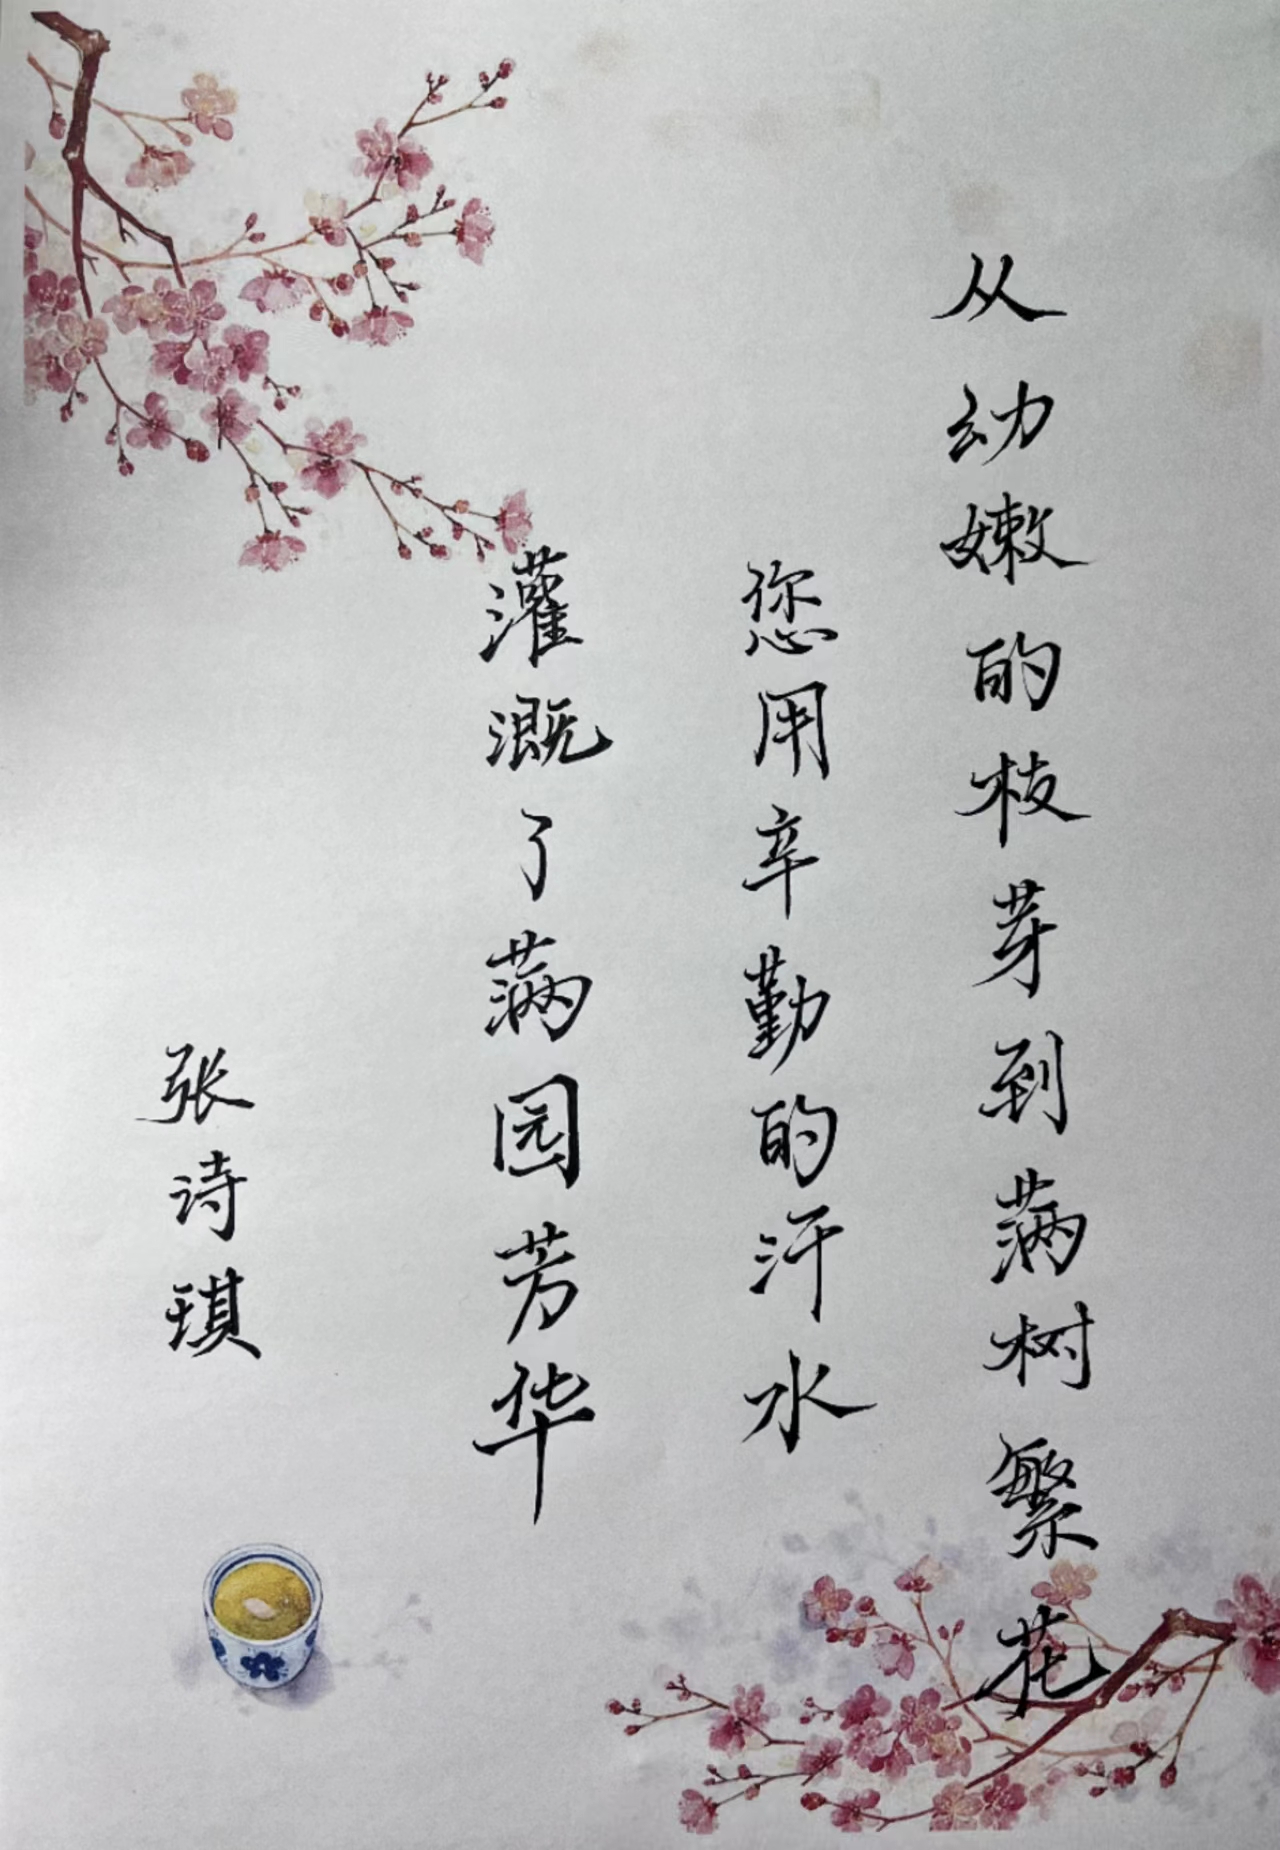 从幼嫩的枝芽到满树繁花
您用辛勤的汗水
灌溉了满园芳华
张诗琪